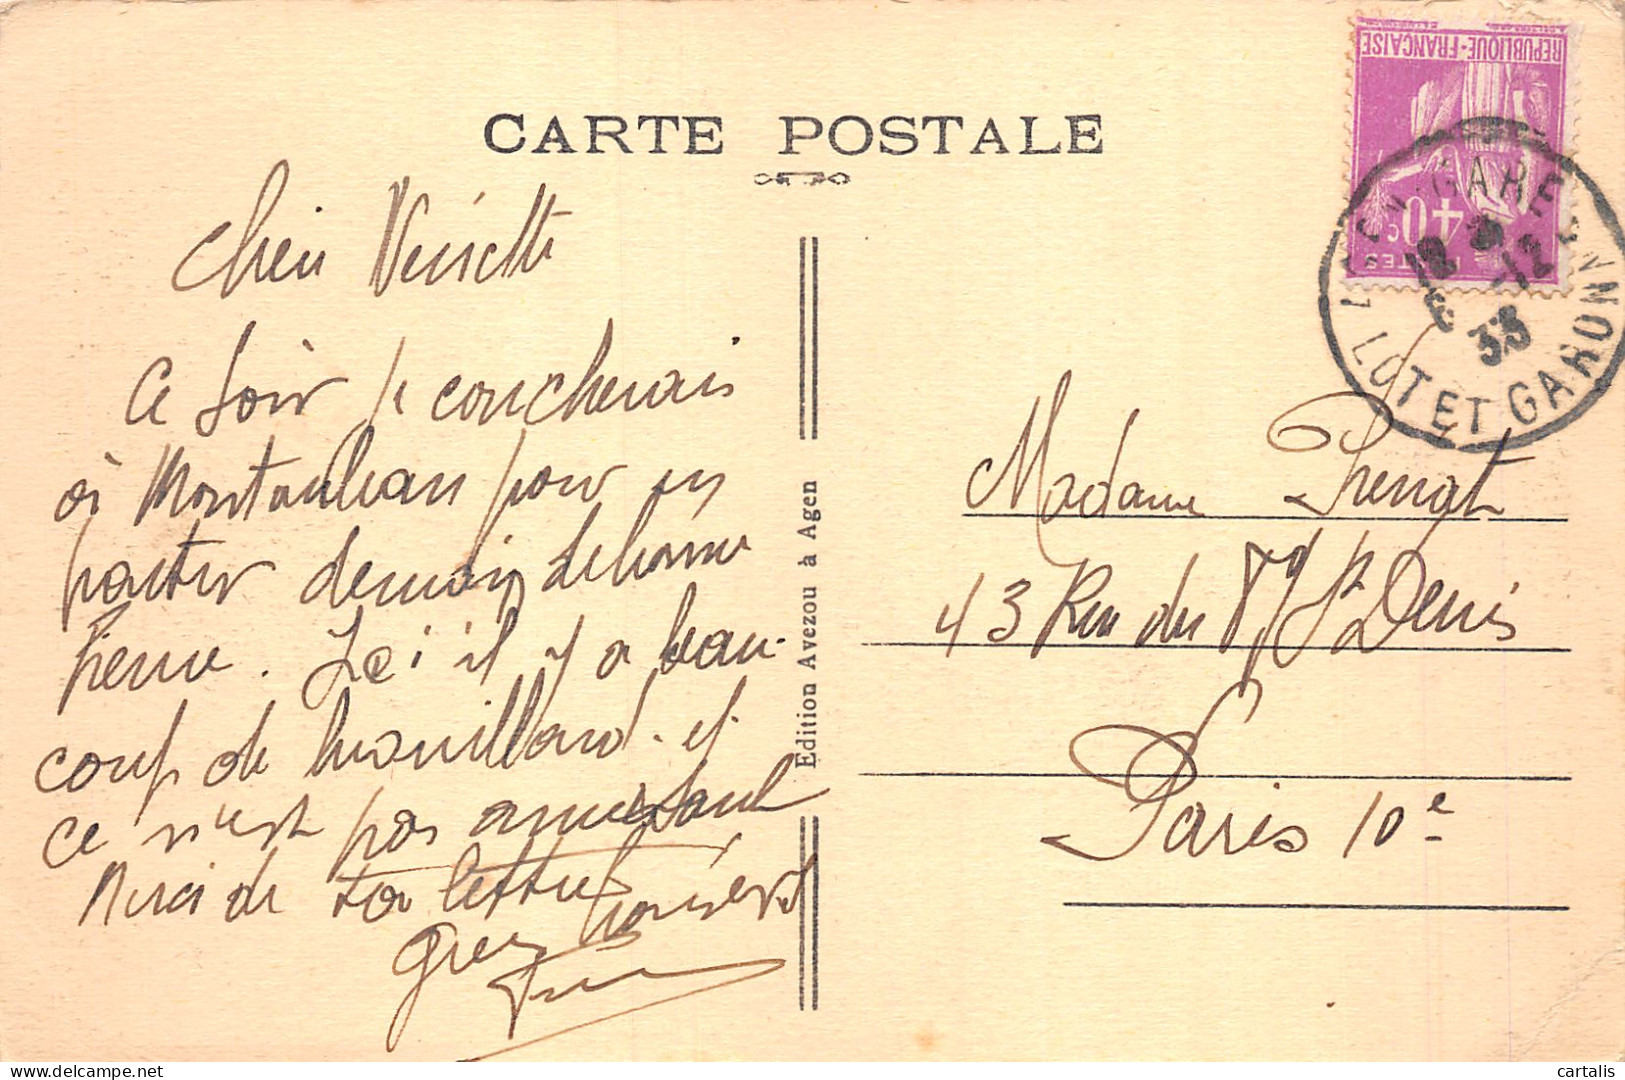 CARTE POSTALE
Ce soir je coucherais
à Montauban pour en
partir demain de bonne
heure. Ici il y a beau-
coup de brouillard. et
ce n'est pas amusant
Merci de ta lettre
Gros
Edition Avezou à Agen
REPUBLIQUE-FRANÇAISE
40c
POSTES
GARE
12
-12
33
LOT ET GARONNE
Madame
43 Rue du Fg St Denis
Paris 10e
cartalis